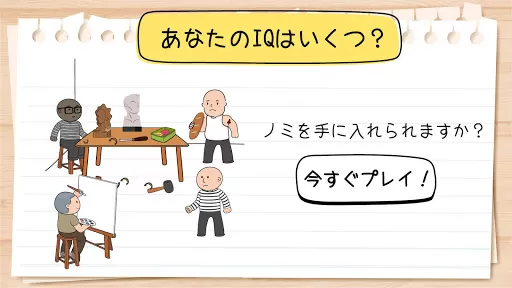 あなたのIQはいくつ？
ノミを手に入れられますか？
今すぐプレイ！